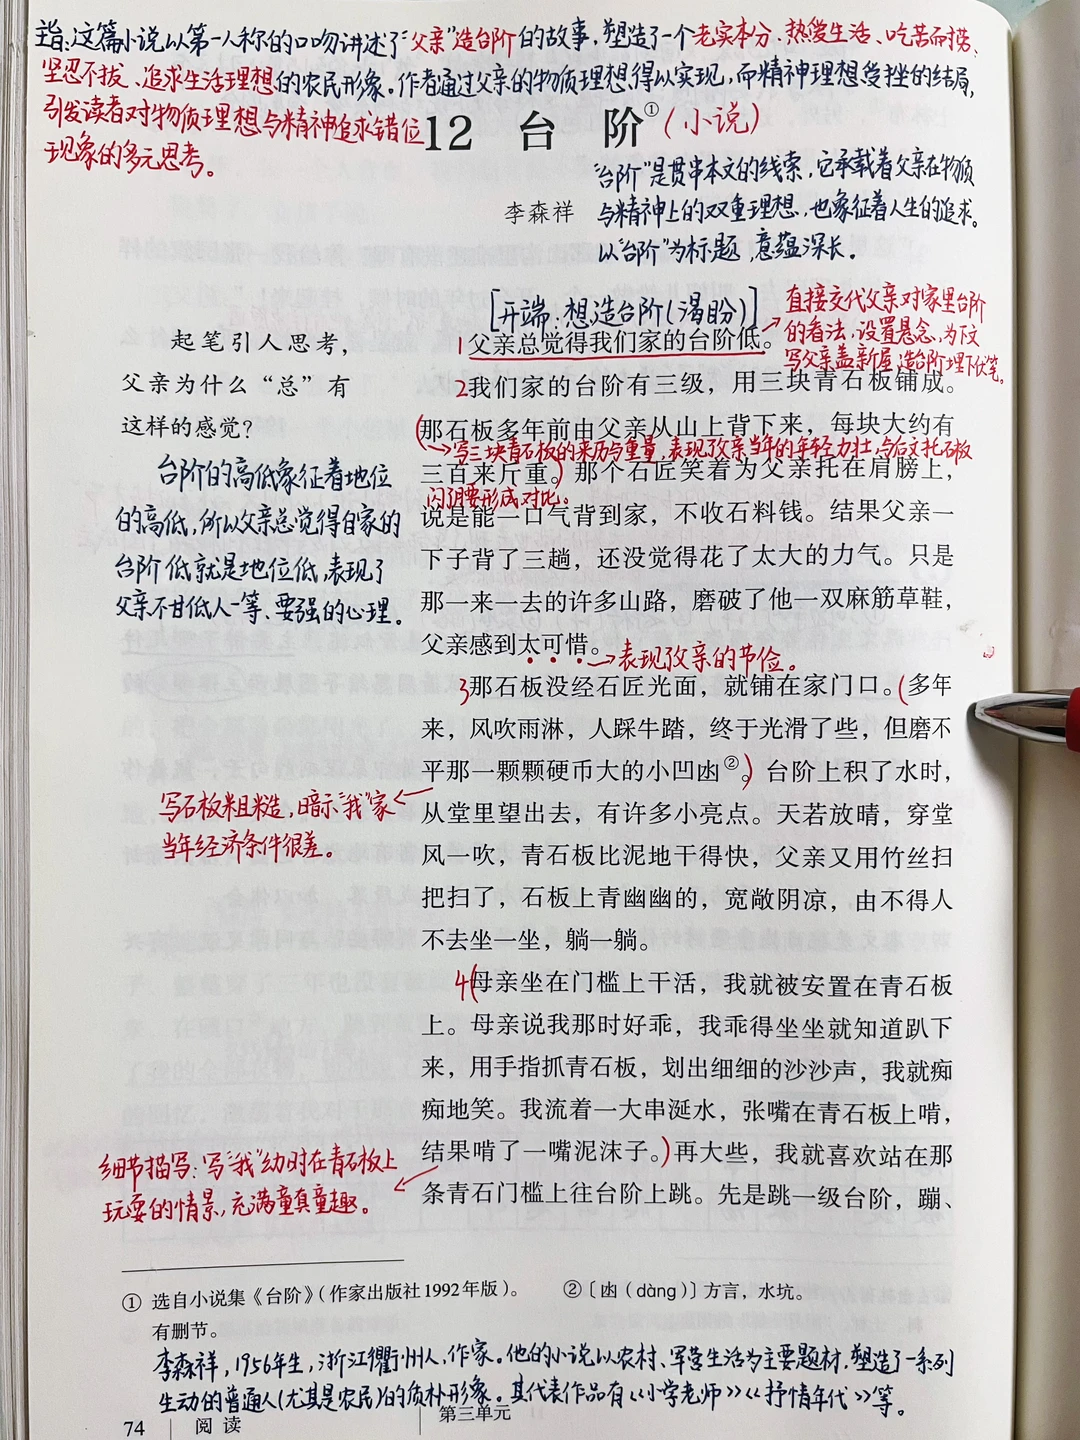 主旨:这篇小说以第一人称的口吻讲述了“父亲”造台阶的故事,塑造了一个老实本分、热爱生活、吃苦耐劳、
坚忍不拔、追求生活理想的农民形象。作者通过父亲的物质理想得以实现,而精神理想受挫的结局,
引发读者对物质理想与精神追求错位
现象的多元思考。
12 台 阶①(小说)
“台阶”是贯串本文的线索,它承载着父亲在物质
与精神上的双重理想,也象征着人生的追求。
以“台阶”为标题,意蕴深长。
李森祥
[开端:想造台阶(渴盼)]
直接交代父亲对家里台阶
的看法,设置悬念,为下文
写父亲盖新屋,造台阶埋下伏笔。
起笔引人思考,
父亲为什么“总”有
这样的感觉?
台阶的高低象征着地位
的高低,所以父亲总觉得自家的
台阶低就是地位低,表现了
父亲不甘低人一等、要强的心理。
1父亲总觉得我们家的台阶低。
2我们家的台阶有三级,用三块青石板铺成。
(那石板多年前由父亲从山上背下来,每块大约有
写三块青石板的来历与重量,表现了父亲当年的年轻力壮,与后文托石板
三百来斤重。)那个石匠笑着为父亲托在肩膀上,
闪了腰形成对比。
说是能一口气背到家,不收石料钱。结果父亲一
下子背了三趟,还没觉得花了太大的力气。只是
那一来一去的许多山路,磨破了他一双麻筋草鞋,
父亲感到太可惜。
表现了父亲的节俭。
3那石板没经石匠光面,就铺在家门口。(多年
来,风吹雨淋,人踩牛踏,终于光滑了些,但磨不
平那一颗颗硬币大的小凹凼②。)台阶上积了水时,
写石板粗糙,暗示“我”家
当年经济条件很差。
从堂里望出去,有许多小亮点。天若放晴,穿堂
风一吹,青石板比泥地干得快,父亲又用竹丝扫
把扫了,石板上青幽幽的,宽敞阴凉,由不得人
不去坐一坐,躺一躺。
4(母亲坐在门槛上干活,我就被安置在青石板
上。母亲说我那时好乖,我乖得坐坐就知道趴下
来,用手指抓青石板,划出细细的沙沙声,我就痴
痴地笑。我流着一大串涎水,张嘴在青石板上啃,
结果啃了一嘴泥沫子。)再大些,我就喜欢站在那
条青石门槛上往台阶上跳。先是跳一级台阶,蹦、
细节描写:写“我”幼时在青石板上
玩耍的情景,充满童真童趣。
① 选自小说集《台阶》(作家出版社1992年版)。
有删节。
②〔凼(dàng)〕方言,水坑。
李森祥,1956年生,浙江衢州人,作家。他的小说以农村、军营生活为主要题材,塑造了一系列
生动的普通人(尤其是农民)的质朴形象。其代表作品有《小学老师》《抒情年代》等。
74 阅读 第三单元